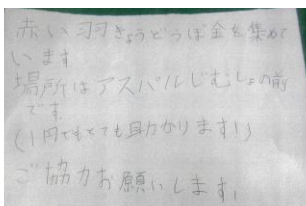 赤い羽きょうどうぼ金を集めて
います
場所はアスパルじむしょの前
です。
(1円でもとても助かります!)
ご協力お願いします。